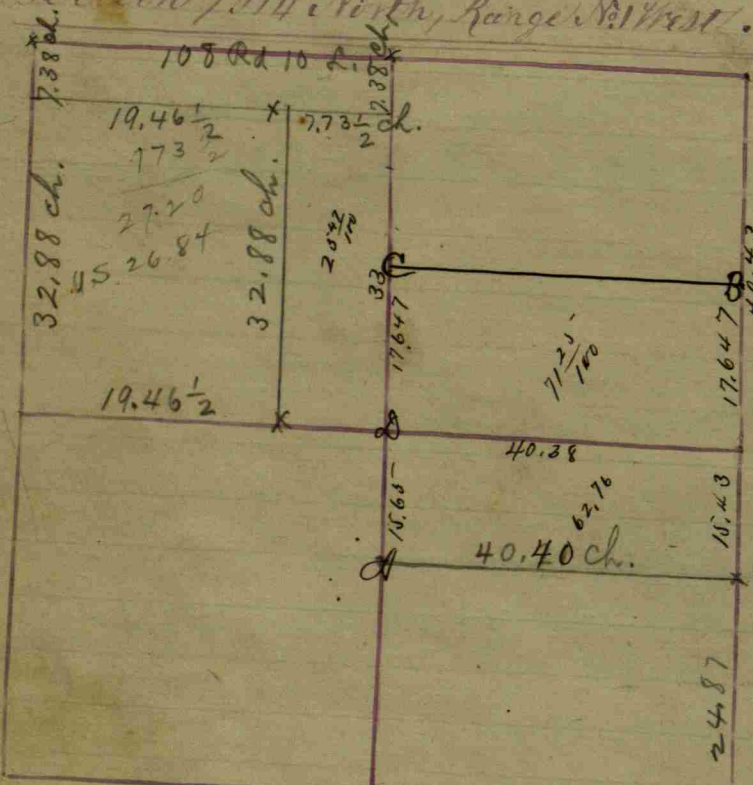 14 North, Range No. 1 West.
108 Rd 10 L.
7.38 ch.
7.38 ch
19.46 1/2
7.73 1/2 ch.
773 2
27.20
26.84
32.88 ch.
32.88 ch.
25 42/100
33
17.647
71 25/100
17.647
19.46 1/2
40.38
15.65
62.76
15.43
40.40 ch.
24.87